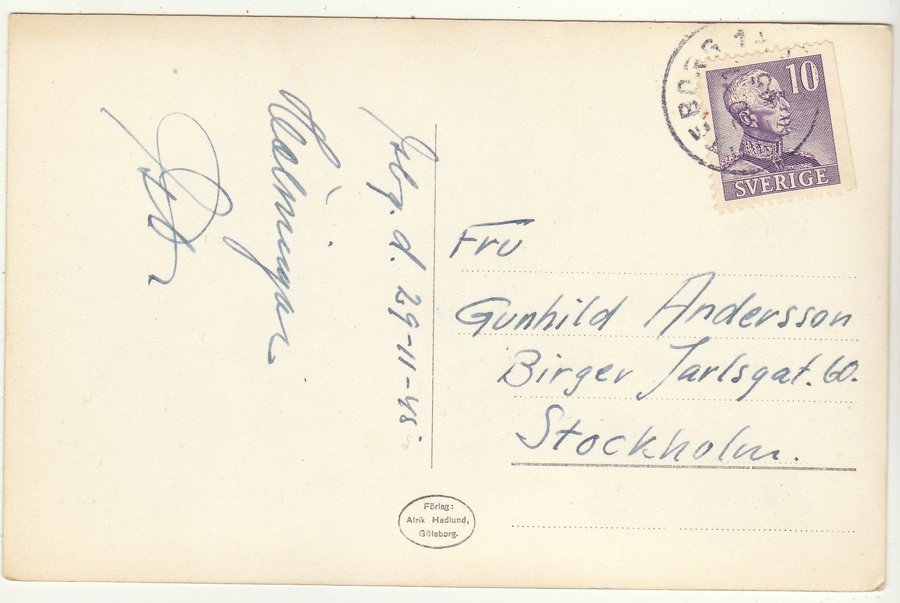 Gbg. d. 29-11-45
Hälsningar
GÖTEBORG 1
10
SVERIGE
Fru
Gunhild Andersson
Birger Jarlsgat. 60.
Stockholm.
Förlag:
Alrik Hedlund,
Göteborg.